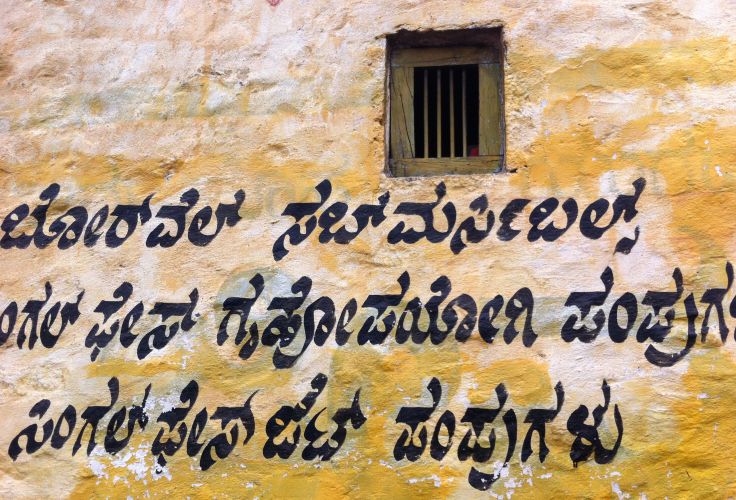 ಬೋರ್‌ವೆಲ್ ಸಬ್‌ಮರ್ಸಿಬಲ್ಸ್
ಂಗಲ್ ಫೇಸ್ ಗೃಹೋಪಯೋಗಿ ಪಂಪುಗಳ
ಸಿಂಗಲ್ ಫೇಸ್ ಜೆಟ್ ಪಂಪುಗಳು